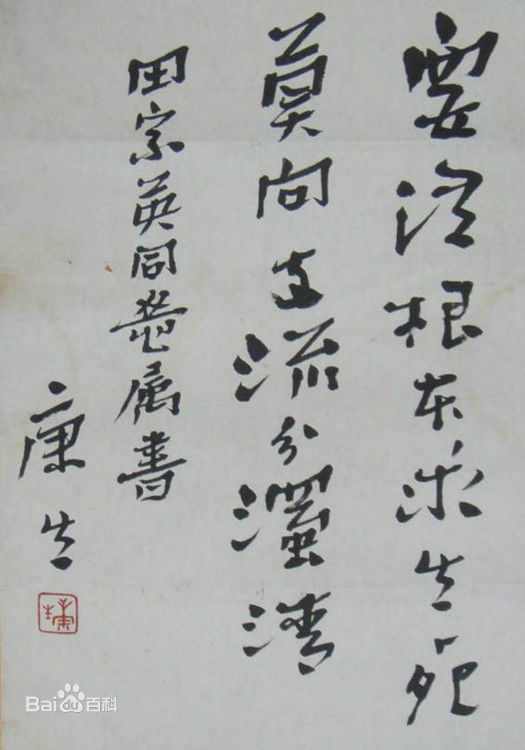 要從根本求生死
莫向支流分濁清
田宗英同志属書
康生
Bai百科